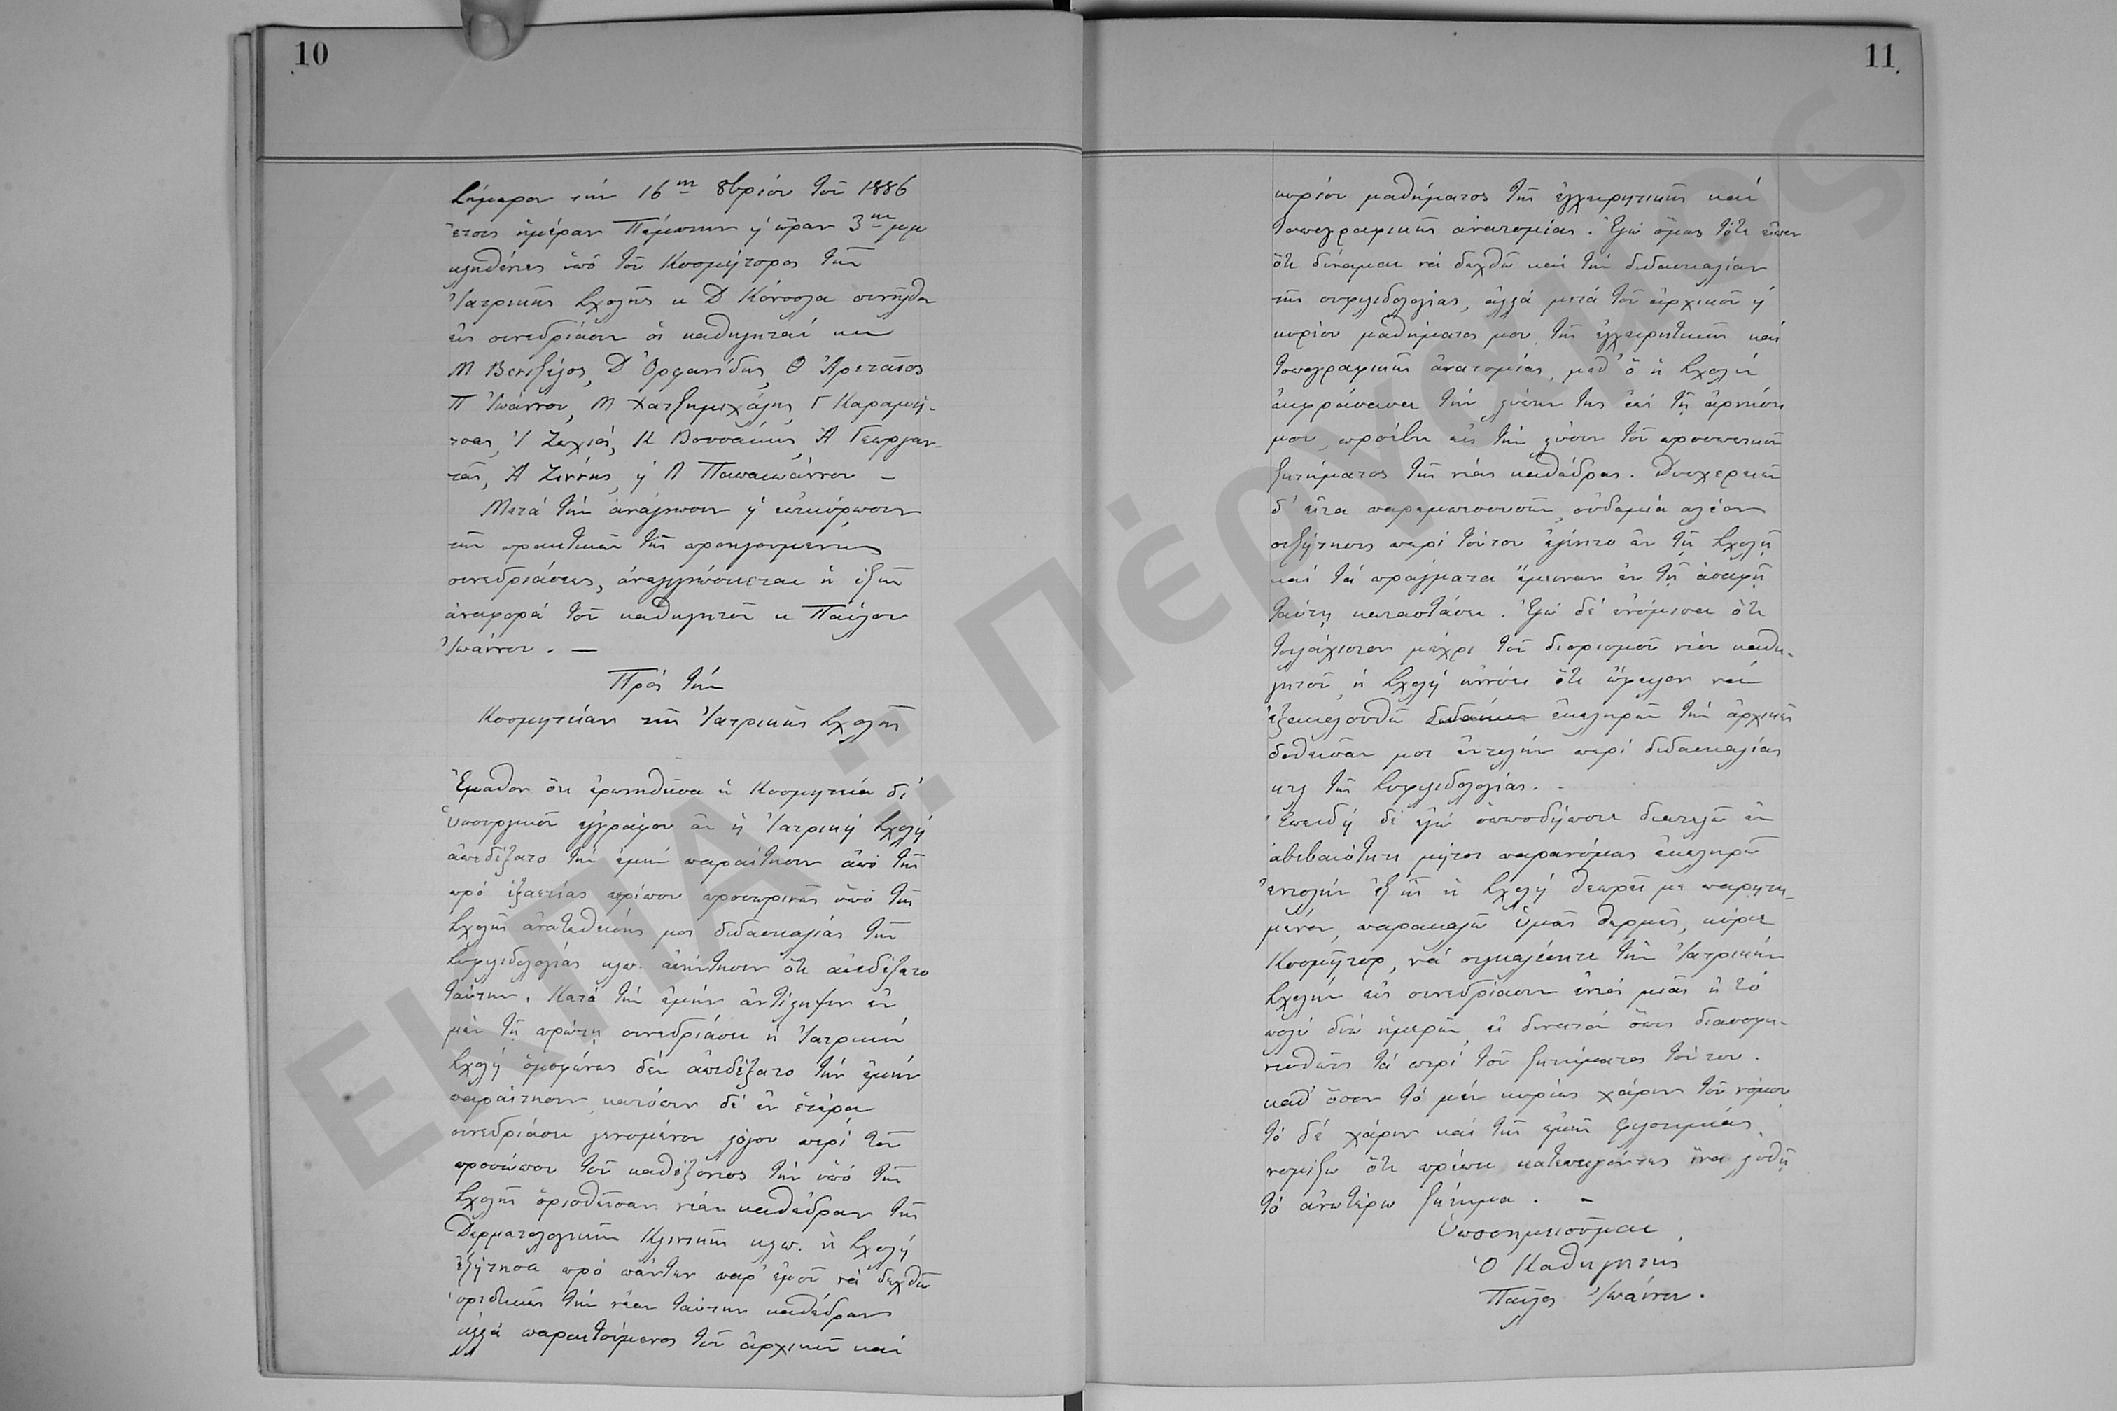 10
Σήμερον τήν 16ην 8βρίου τοῦ 1886
ἔτους ἡμέραν Πέμπτην ἡ ὥραν 3ην μμ
κληθέντες ὑπό τοῦ Κοσμήτορος τῆς
Ἰατρικῆς Σχολῆς κ Δ Κόνσολα συνῆλθον
εἰς συνεδρίασιν οἱ καθηγηταί κκ
Μ Βενιζέλος, Δ Ὀρφανίδης, Θ Ἀρεταῖος
Π Ἰωάννου, Μ Χατζημιχάλης, Γ Καραμή-
τσας, Ἰ Ζωχιός, Κ Βουσάκης, Ἀ Γεωργαν-
τᾶς, Ἀ Ζίννης, ἡ Λ Παπαιωάννου –
Μετά τήν ἀνάγνωσιν ἡ ἐπικύρωσιν
τῶν πρακτικῶν τῆς προηγουμένης
συνεδριάσεως, ἀναγινώσκεται ἡ ἑξῆς
ἀναφορά τοῦ καθηγητοῦ κ Παύλου
Ἰωάννου. –
Πρός τήν
Κοσμητείαν τῆς Ἰατρικῆς Σχολῆς
Ἔμαθον ὅτι ἐρωτηθεῖσα ἡ Κοσμητεία δι'
Ὑπουργικοῦ ἐγγράφου ἄν ἡ Ἰατρική Σχολή
ἀπεδέξατο τήν ἐμήν παραίτησιν ἀπό τῆς
πρό ἑξαετίας περίπου προσωρινῶς ὑπό τῆς
Σχολῆς ἀνατεθείσης μοι διδασκαλίας τῆς
Συφιλιδολογίας κλπ. ἀπήντησεν ὅτι ἀπεδέξατο
ταύτην. Κατά τήν ἐμήν ἀντίληψιν ἐν
μέν τῇ πρώτῃ συνεδριάσει ἡ Ἰατρική
Σχολή ὁμοφώνως δέν ἀπεδέξατο τήν ἐμήν
παραίτησιν, κατόπιν δέ ἐν ἑτέρᾳ
συνεδριάσει γενομένου λόγου περί τοῦ
προσώπου τοῦ καθέξοντος τήν ὑπό τῆς
Σχολῆς ὁρισθεῖσαν νέαν καθέδραν τῆς
Δερματολογικῆς Κλινικῆς κλπ. ἡ Σχολή
ἐζήτησε πρό πάντων παρ' ἐμοῦ νά δεχθῶ
ὁριστικῶς τήν νέαν ταύτην καθέδραν
ἀλλά παραιτούμενος τοῦ ἀρχικοῦ καί
11
κυρίου μαθήματος τῆς ἐγχειρητικῆς καί
τοπογραφικῆς ἀνατομίας. Ἐγώ ὅμως τότε εἶπον
ὅτι δύναμαι νά δεχθῶ καί τήν διδασκαλίαν
τῆς συφιλιδολογίας, ἀλλά μετά τοῦ ἀρχικοῦ ἡ
κυρίου μαθήματος μου τῆς ἐγχειρητικῆς καί
τοπογραφικῆς ἀνατομίας, μεθ' ὅ ἡ Σχολή
ἐκφράσασα τήν λύπην της ἐπί τῇ ἀρνήσει
μου, προέβη εἰς τήν λύσιν τοῦ προσωπικοῦ
ζητήματος τῆς νέας καθέδρας. Δυσχερειῶν
δ' εἶτα παρεμπεσουσῶν, οὐδεμία πλέον
συζήτησις περί τούτου ἐγένετο ἐν τῇ Σχολῇ
καί τά πράγματα ἔμειναν ἐν τῇ ἀσαφῇ
ταύτῃ καταστάσει. Ἐγώ δέ ἐνόμισα ὅτι
τοὐλάχιστον μέχρι τοῦ διορισμοῦ νέου καθη-
γητοῦ, ἡ Σχολή ἐννόει ὅτι ὤφειλον νά
ἐξακολουθῶ ἐκπληρῶν τήν ἀρχικῶς
δοθεῖσάν μοι ἐντολήν περί διδασκαλίας
κτλ τῆς Συφιλιδολογίας. -
Ἐπειδή δέ ἐγώ ὁπωσδήποτε διατελῶ ἐν
ἀβεβαιότητι μήπως παρανόμως ἐκπληρῶ
ἐντολήν ἐξ ἧς ἡ Σχολή θεωρεῖ με παρῃτη-
μένον, παρακαλῶ Ὑμᾶς θερμῶς, κύριε
Κοσμῆτορ, νά συγκαλέσητε τήν Ἰατρικήν
Σχολήν εἰς συνεδρίασιν ἐντός μιᾶς ἡ τό
πολύ δύο ἡμερῶν, εἰ δυνατόν ὅπως διασαφη-
νισθῶσι τά περί τοῦ ζητήματος τούτου.
καθ' ὅσον τό μέν κυρίως χάριν τοῦ νόμου
τό δέ χάριν καί τῆς ἐμῆς φιλοτιμίας,
νομίζω ὅτι πρέπει κατεπειγόντως ἵνα λυθῇ
τό ἀνωτέρω ζήτημα. –
Ὑποσημειοῦμαι
Ὁ Καθηγητής
Παῦλος Ἰωάννου.
ΕΚΠΑ: Πέργαμος